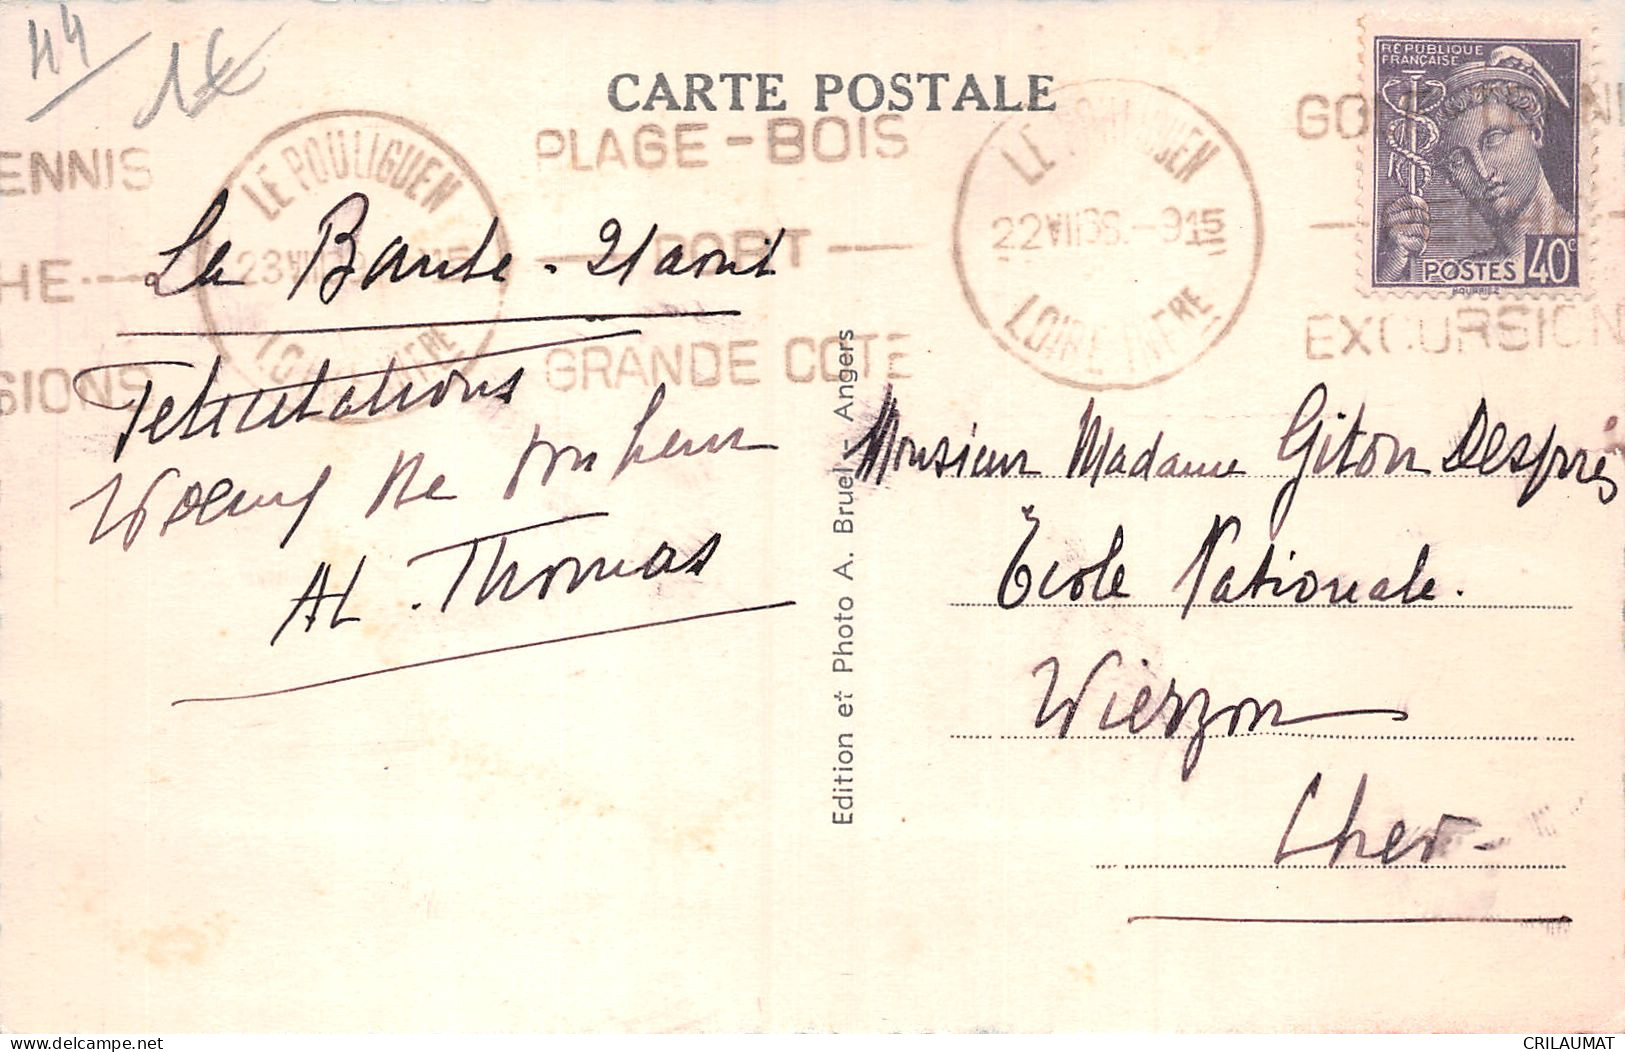 44
1€
CARTE POSTALE
ENNIS
HE
SIONS
LE POULIGUEN
LOIRE INFRE
PLAGE - BOIS
PORT
GRANDE COTE
LE POULIGUEN
22 VIII 38. - 9 15
LOIRE INFRE
EXCURSION
REPUBLIQUE
FRANÇAISE
POSTES 40c
La Baule - 21 aout
Felicitations
Voeux de bonheur
AL. Thomas
Edition et Photo A. Bruel - Angers
Monsieur Madame Giton Desprès
Ecole Nationale.
Vierzon
Cher -
CRILAUMAT